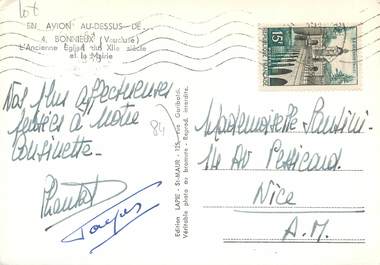 lot
EN AVION AU-DESSUS DE...
4. BONNIEUX (Vaucluse)
L'Ancienne Eglise du XIIe siècle
et la Mairie
Nos plus affectueuses
pensées à notre
Cousinette.
Jacques
84
Edition LAPIE - St-MAUR - 125, rue Garibaldi.
Véritable photo au bromure - Reprod. interdite.
15F
Mademoiselle
14 Av
Nice
A.M.